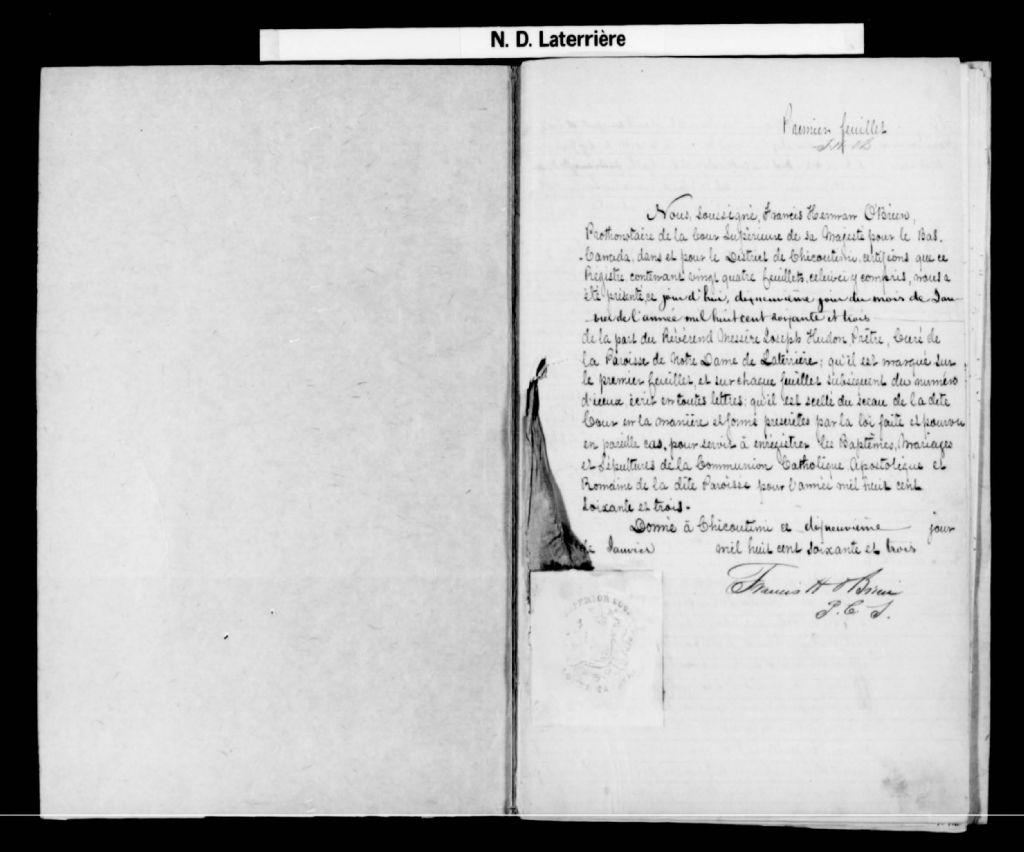 N. D. Laterrière
Premier feuillet
Nous, soussigné, Francis Herman O'Brien,
Prothonotaire de la Cour Supérieure de sa Majesté pour le Bas-
Canada, dans et pour le District de Chicoutimi, certifions que ce
Régistre contenant vingt quatre feuillets, celuici y compris, nous a
été présenté, ce jour d'hui, dixneuvième jour du mois de Jan-
vier de l'année mil huit cent soixante et trois
de la part du Révérend Messire Joseph Hudon Prêtre, Curé de
la Paroisse de Notre Dame de Laterrière; qu'il est marqué sur
le premier feuillet, et sur chaque feuillet subséquent du numéro
d'iceux écrit en toutes lettres; qu'il est scellé du sceau de la dite
Cour en la manière et forme prescrites par la loi faite et pourvue
en pareille cas, pour servir à enrégistrer les Baptêmes, Mariages
et Sépultures de la Communion Catholique Apostolique et
Romaine de la dite Paroisse pour l'année mil huit cent
soixante et trois.
Donné à Chicoutimi ce dixneuvième jour
de Janvier mil huit cent soixante et trois
Francis H O'Brien
P. C. S.